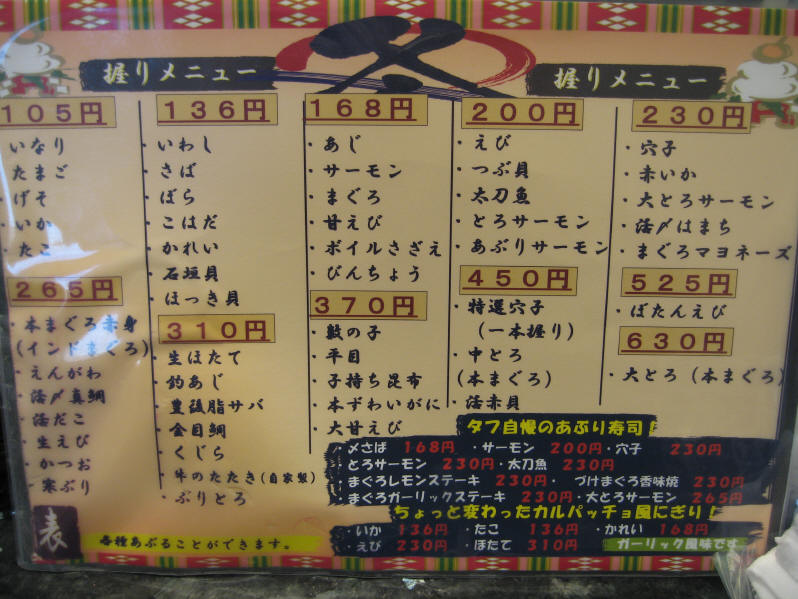 握りメニュー
握りメニュー
105円
・いなり
・たまご
・げそ
・いか
・たこ
265円
・本まぐろ赤身
(インドまぐろ)
・えんがわ
・活〆真鯛
・活だこ
・生えび
・かつお
・寒ぶり
136円
・いわし
・さば
・ぼら
・こはだ
・かれい
・石垣貝
・ほっき貝
310円
・生ほたて
・釣あじ
・豊後脂サバ
・金目鯛
・くじら
・牛のたたき(自家製)
・ぶりとろ
168円
・あじ
・サーモン
・まぐろ
・甘えび
・ボイルさざえ
・びんちょう
370円
・数の子
・平目
・子持ち昆布
・本ずわいがに
・大甘えび
200円
・えび
・つぶ貝
・太刀魚
・とろサーモン
・あぶりサーモン
450円
・特選穴子
(一本握り)
・中とろ
(本まぐろ)
・活赤貝
230円
・穴子
・赤いか
・大とろサーモン
・活〆はまち
・まぐろマヨネーズ
525円
・ぼたんえび
630円
・大とろ(本まぐろ)
タフ自慢のあぶり寿司!
・〆さば 168円 ・サーモン 200円・穴子 230円
・とろサーモン 230円・太刀魚 230円
・まぐろレモンステーキ 230円・ づけまぐろ香味焼 230円
・まぐろガーリックステーキ 230円・大とろサーモン 265円
ちょっと変わったカルパッチョ風にぎり!
・いか 136円・たこ 136円・かれい 168円
・えび 230円・ほたて 310円 ガーリック風味です
表
各種あぶることができます。